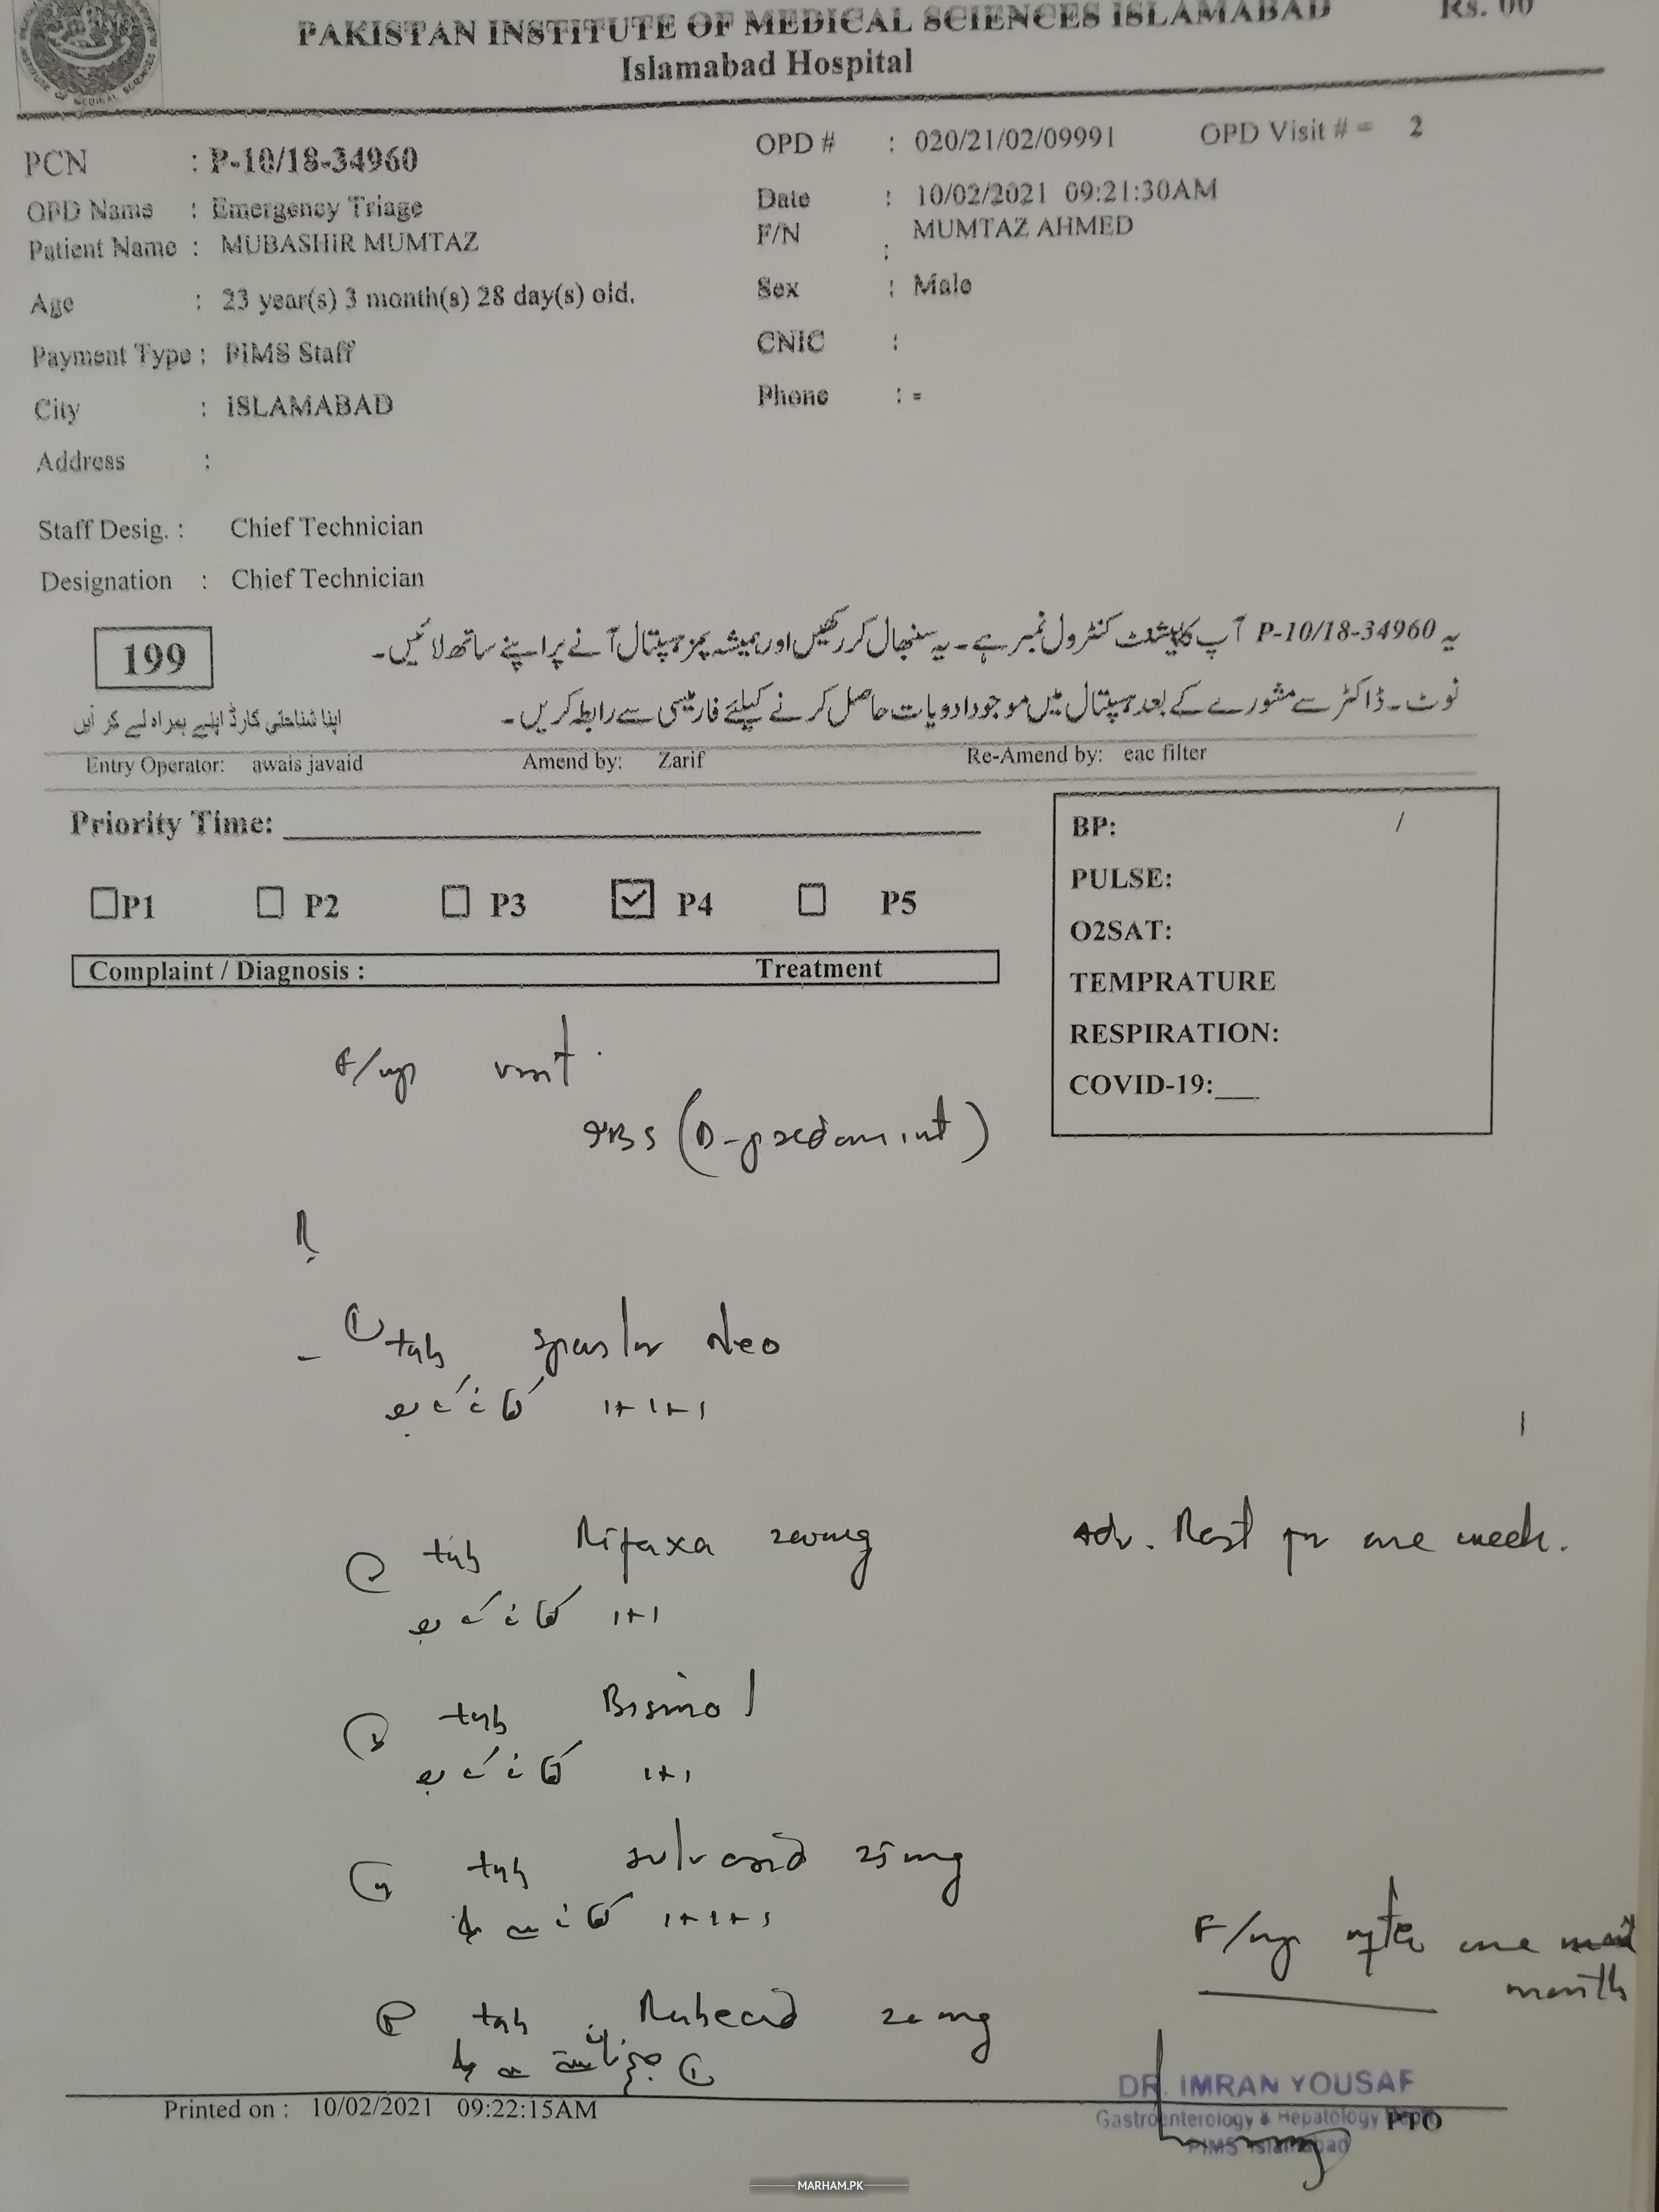 PAKISTAN INSTITUTE OF MEDICAL SCIENCES ISLAMABAD Rs. 00
Islamabad Hospital
PCN : P-10/18-34960 OPD # : 020/21/02/09991 OPD Visit # = 2
OPD Name : Emergency Triage Date : 10/02/2021 09:21:30AM
Patient Name : MUBASHIR MUMTAZ F/N : MUMTAZ AHMED
Age : 23 year(s) 3 month(s) 28 day(s) old. Sex : Male
Payment Type : PIMS Staff CNIC :
City : ISLAMABAD Phone : =
Address :
Staff Desig. : Chief Technician
Designation : Chief Technician
یہ P-10/18-34960 آپ کا پیشنٹ کنٹرول نمبر ہے۔ یہ سنبھال کر رکھیں اور ہمیشہ پمز ہسپتال آنے پر اپنے ساتھ لائیں۔
199
نوٹ۔ ڈاکٹر سے مشورے کے بعد ہسپتال میں موجود ادویات حاصل کرنے کیلئے فارمیسی سے رابطہ کریں۔
اپنا شناختی کارڈ اپنے ہمراہ لے کر آیں
Entry Operator: awais javaid Amend by: Zarif Re-Amend by: eac filter
Priority Time:
P1 P2 P3 P4 P5
Complaint / Diagnosis : Treatment
BP: /
PULSE:
O2SAT:
TEMPRATURE
RESPIRATION:
COVID-19:
F/up visit
IBS (D-predomint)
① tab Spasler Neo
کھانے کے بعد 1+1+1
② tab Rifaxa 200mg
کھانے کے بعد 1+1
Adv. Rest for one week.
③ tab Bismol
کھانے کے بعد 1+1
④ tab 25mg
کھانے سے پہلے 1+1+1
⑤ tab 20mg
① سے پہلے
F/up after one
month
DR. IMRAN YOUSAF
Gastroenterology & Hepatology
PIMS Islamabad
PTO
Printed on : 10/02/2021 09:22:15AM
MARHAM.PK